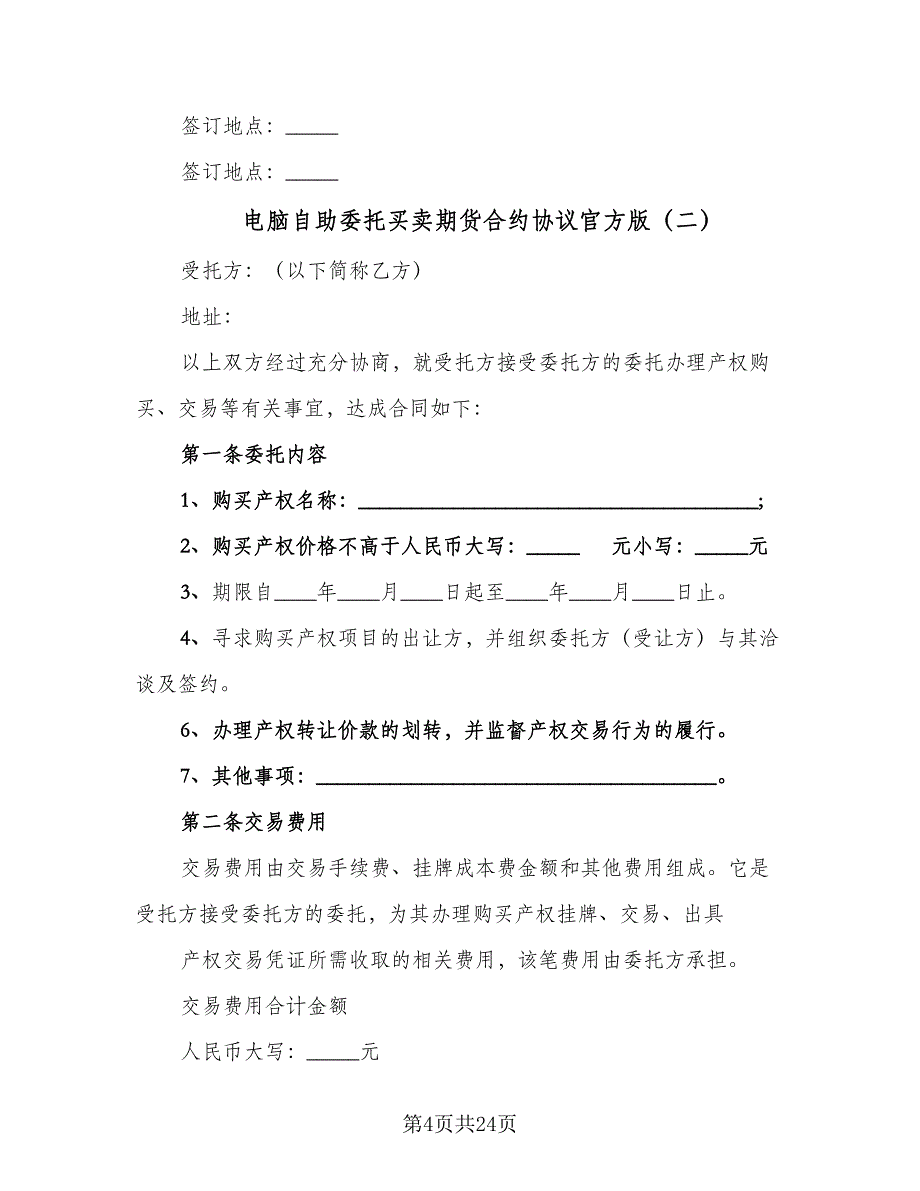 签订地点：_____
签订地点：_____
电脑自助委托买卖期货合约协议官方版（二）
受托方：（以下简称乙方）
地址：
以上双方经过充分协商，就受托方接受委托方的委托办理产权购
买、交易等有关事宜，达成合同如下：
第一条委托内容
1、购买产权名称：______________________________________;
2、购买产权价格不高于人民币大写：_____ 元小写：_____元
3、期限自____年____月____日起至____年____月____日止。
4、寻求购买产权项目的出让方，并组织委托方（受让方）与其洽
谈及签约。
6、办理产权转让价款的划转，并监督产权交易行为的履行。
7、其他事项：______________________________________。
第二条交易费用
交易费用由交易手续费、挂牌成本费金额和其他费用组成。它是
受托方接受委托方的委托，为其办理购买产权挂牌、交易、出具
产权交易凭证所需收取的相关费用，该笔费用由委托方承担。
交易费用合计金额
人民币大写：_____元
第4页共24页